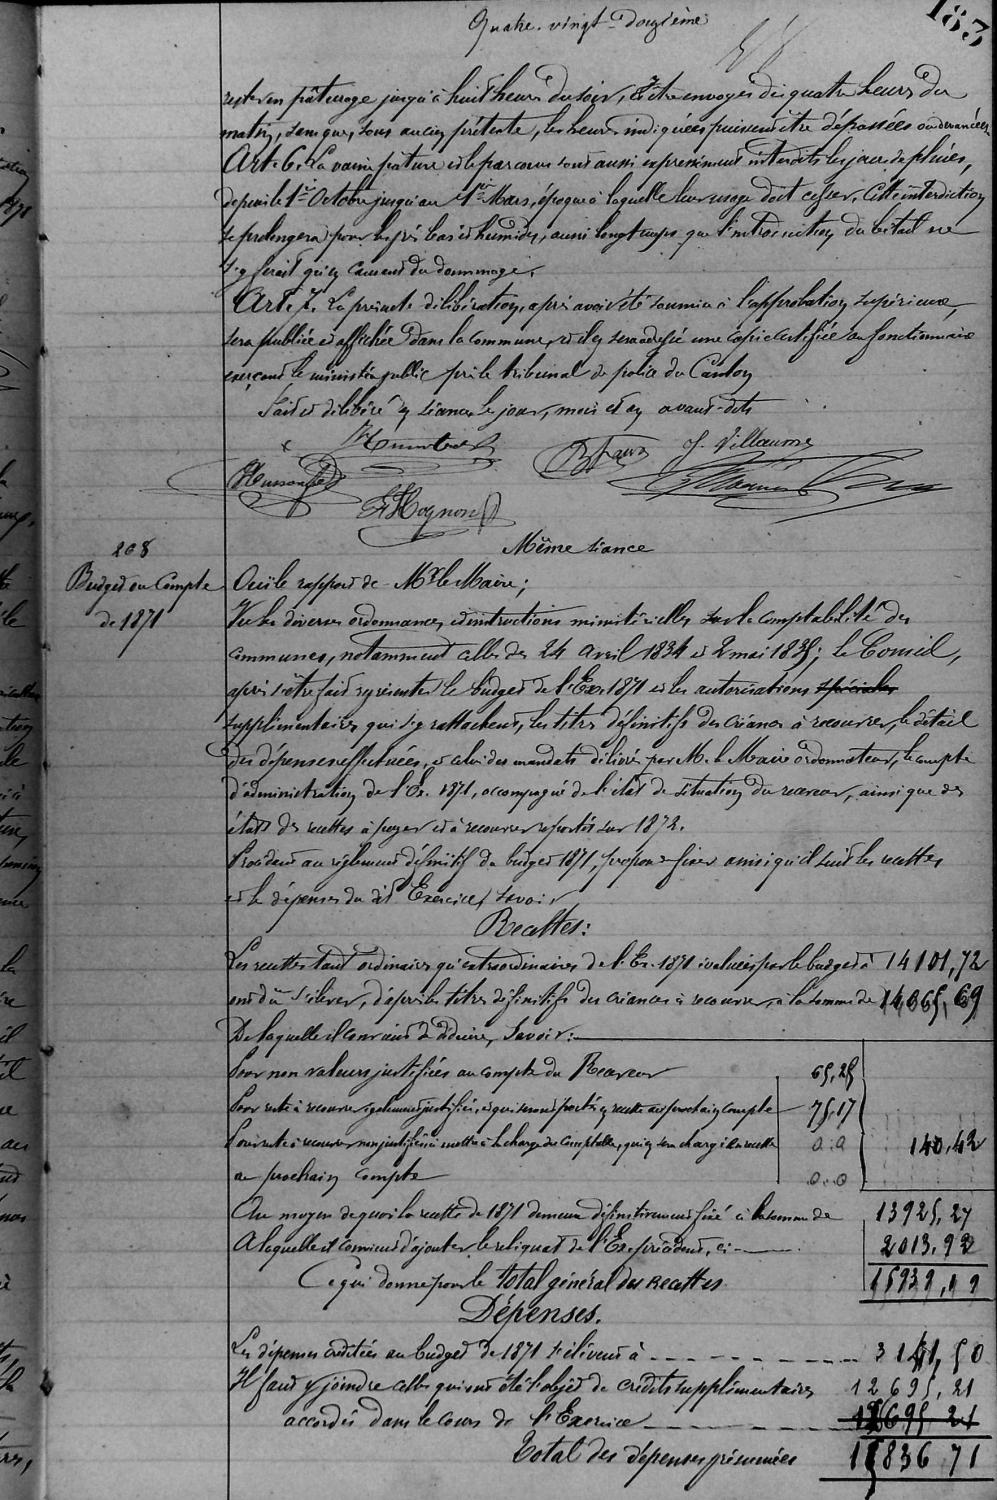 Quatre-vingt-Douzième
183
rester en pâturage jusqu'à huit heures du soir, et être envoyés dès quatre heures du
matin, sans que, sous aucun prétexte, les heures indiquées puissent être dépassées ou devancées.
Art. 6. La vaine pâture et le parcours sont aussi expressément interdits les jours de pluies,
depuis le 1er Octobre jusqu'au 1er Mars, époque à laquelle leur usage doit cesser. Cette interdiction
se prolongera pour les prés bas et humides, aussi longtemps que l'introduction du bétail ne
s'y ferait qu'en causant du dommage.
Art. 7. La présente délibération, après avoir été soumise à l'approbation supérieure,
sera publiée et affichée dans la commune, et il en sera adressé une copie certifiée au fonctionnaire
exerçant le ministère public près le tribunal de police du Canton
Fait et délibéré en séance, le jour, mois et an avant-dits
J. Villaume
Husson
Hognon
Même séance
208
Budget ou Compte
de 1871
Ouï le rapport de Mr le Maire;
Vu les diverses ordonnances et instructions ministérielles sur la comptabilité des
communes, notamment celles des 24 Avril 1834 et 2 mai 1835; le Conseil,
après s'être fait représenter le budget de l'Ex. 1871 et les autorisations spéciales
supplémentaires qui s'y rattachent, les titres définitifs des créances à recouvrer, le détail
des dépenses effectuées, et celui des mandats délivrés par M. le Maire ordonnateur, le compte
d'administration de l'Ex. 1871, accompagné de l'état de situation du receveur, ainsi que des
états des restes à payer et à recouvrer reportés sur 1872.
Procédant au règlement définitif du budget 1871, propose de fixer ainsi qu'il suit les recettes
et les dépenses du dit Exercice, savoir
Recettes:
Les recettes tant ordinaires qu'extraordinaires de l'Ex. 1871 évaluées par le budget à 14101,72
ont dû s'élever, d'après les titres définitifs des créances à recouvrer, à la somme de 14,065,69
De laquelle il convient de déduire, Savoir:
Pour non valeurs justifiées au compte du Receveur 65,25
Pour reste à recouvrer également justifiés, et qui seront portés en recette au prochain compte 75,17
Pour reste à recouvrer non justifiés à mettre à la charge du comptable, qui en sera chargé en recette 0.0 140,42
au prochain compte 0..0
Au moyen de quoi la recette de 1871 demeure définitivement fixée à la somme de 13925,27
A laquelle il convient d'ajouter le reliquat de l'Ex. précédent, ci 2013,92
Ce qui donne pour le total général des Recettes 15939,19
Dépenses.
Les dépenses créditées au budget de 1871 s'élèvent à 3141,50
Il faut y joindre celles qui ont été l'objet de crédits supplémentaires 12695,21
accordés dans le cours de l'Exercice 12695 21
Total des dépenses présumées 15836 71